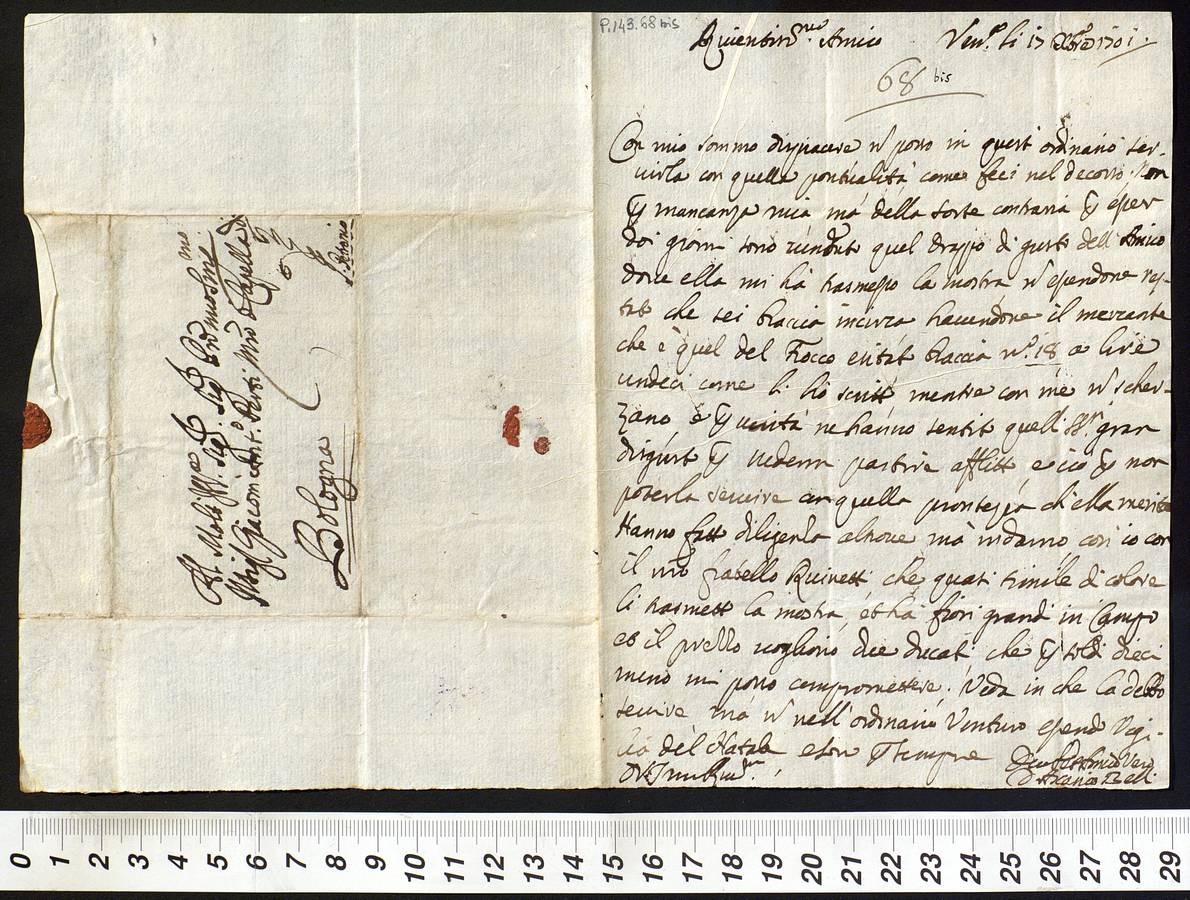 P.143.68 bis
Amico Ven.a li 17 Xbre 1701
68 bis
Con mio sommo dispiacere n posso in questi ordinario ser-
virla con quella pontualità come feci nel decorso. Non
mancanza mia mà della sorte contraria
doi giorni sono quel drappo di gusto dell Amico
dove ella mi hà trasmesso la mostra n essendone res-
che sei braccia incirca havendone il mercante
che è quel del Fiocco braccia n.o 18 a lire
undeci come li hò scritto mentre con me n scher-
zano, e verità ne hanno sentito quelli SS.ri gran
disgusto vederm partire afflitto e ciò non
poterla servire con quella prontezza ch'ella merita
Hanno fatto diligenza altrove mà indarno così io con
il mio fratello che quasi simile di colore
li trasmetto la mostra, et hà fiori grandi in Campo
et il prezzo vogliono due ducati che soldi dieci
meno mi posso compromettere. Veda in che la debbo
servire, mà n nell'ordinario Venturo essendo Vigi-
lia del Natale e son sempre
Al Molto
Sig.r
Giacom Ant.o Perti Mro di Capella di
S. Petronio
Bologna
0 1 2 3 4 5 6 7 8 9 10 11 12 13 14 15 16 17 18 19 20 21 22 23 24 25 26 27 28 29